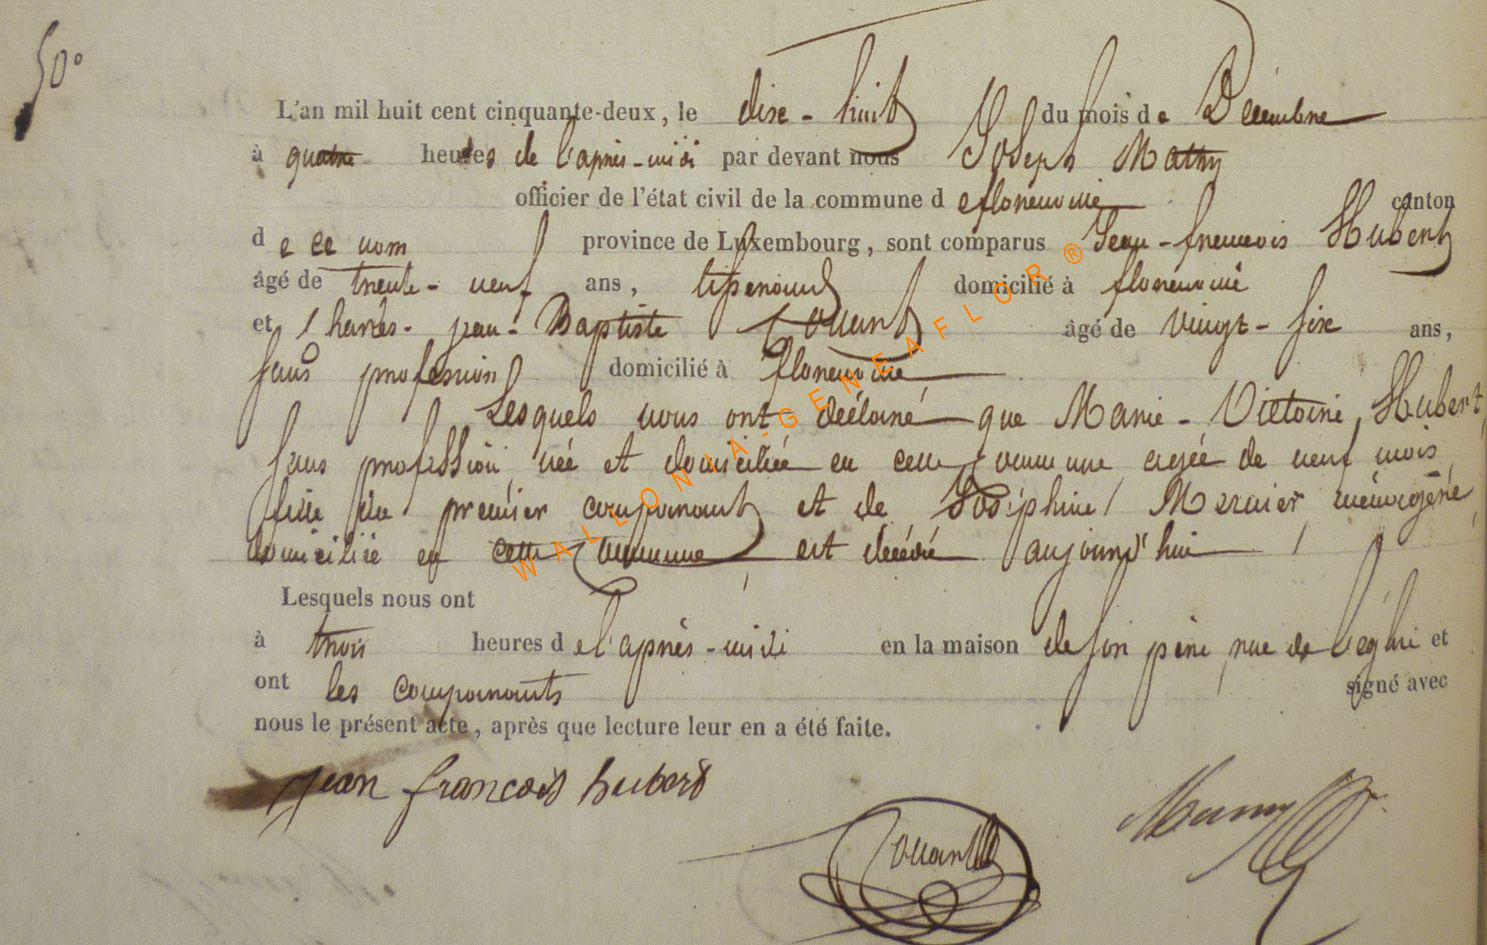 50°
L'an mil huit cent cinquante-deux, le dix-huit du mois de Décembre
à quatre heures de l'après-midi par devant nous Joseph Mathy
officier de l'état civil de la commune de florenville canton
de ce nom province de Luxembourg, sont comparus Jean-francois Hubert
âgé de trente-neuf ans, tisserand domicilié à florenville
et Charles-jean-Baptiste Collard âgé de vingt-six ans,
sans profession domicilié à florenville
Lesquels nous ont déclaré que Marie-Victoire Hubert,
sans profession, née et domiciliée en cette Commune agée de neuf mois,
fille du premier comparant et de Joséphine Mernier ménagère,
domiciliée en cette Commune est décédé aujourd'hui
Lesquels nous ont
à trois heures de l'après-midi en la maison de son père, rue de l'église et
ont les comparants signé avec
nous le présent acte, après que lecture leur en a été faite.
jean francois hubert
Collard
WALLONIA-GENEAFLOR®